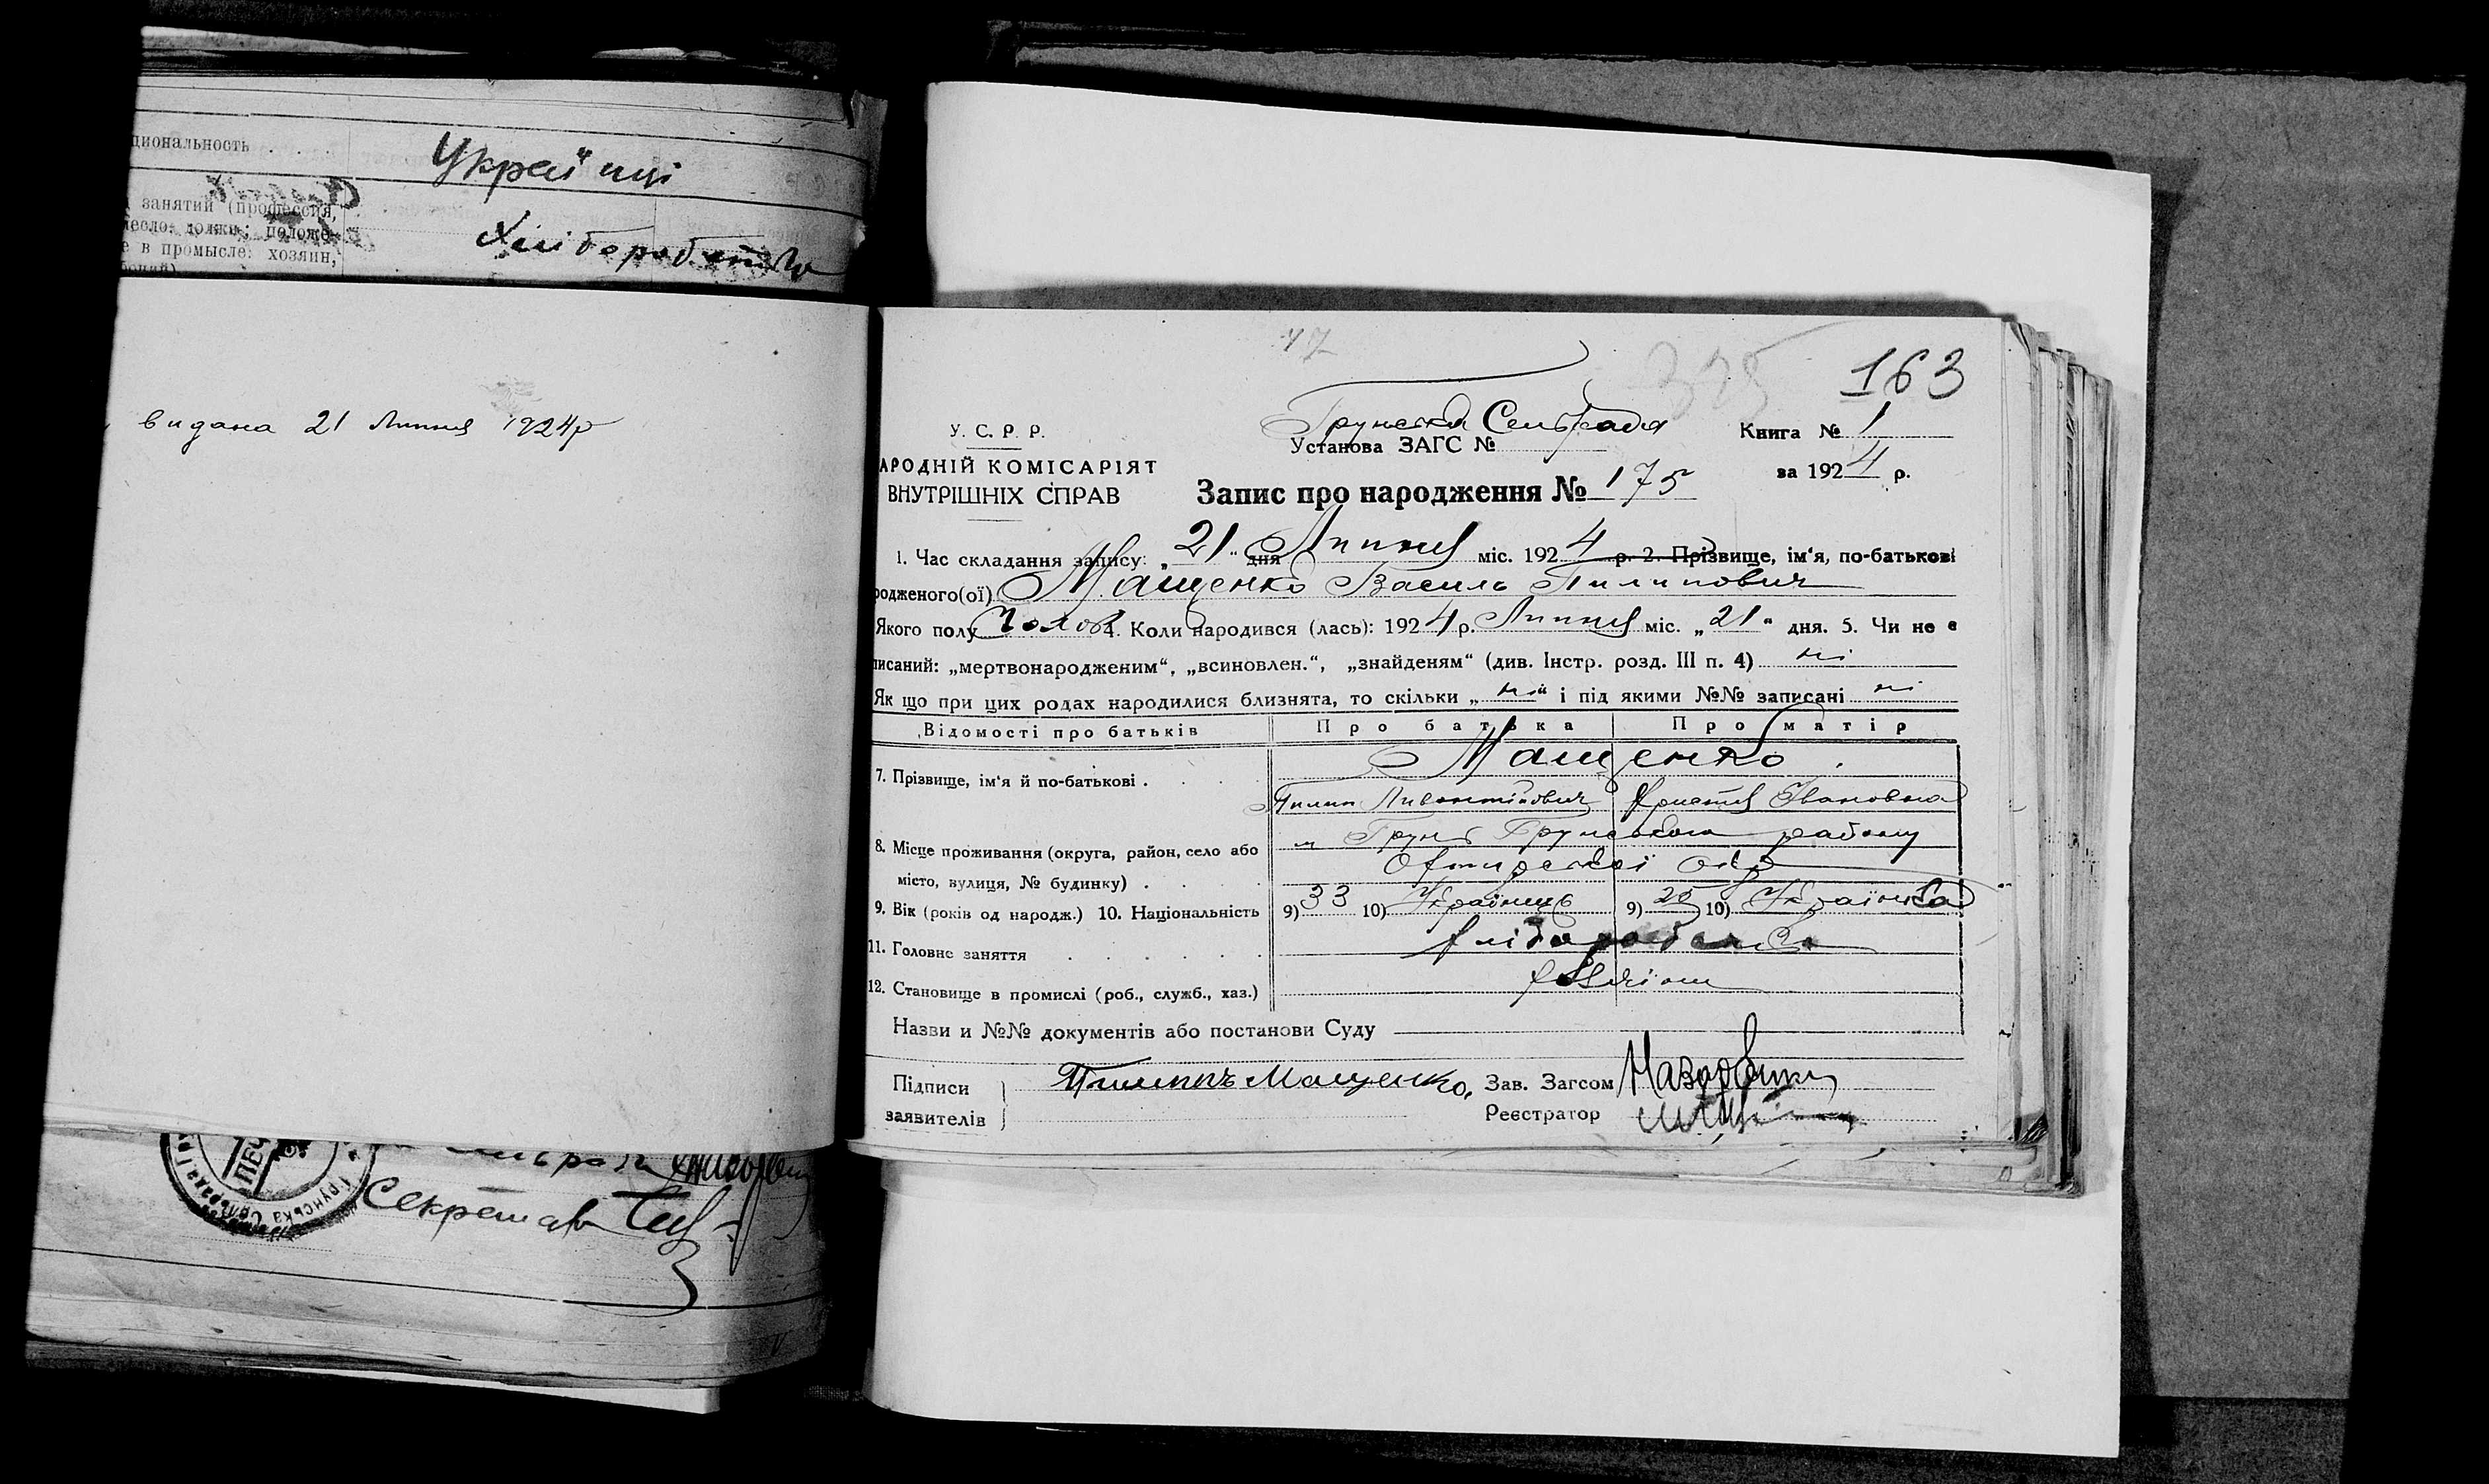 циональность . . . Україиці
занятий (профессия,
месло, должн.; положе-
е в промысле: хозяин,
Хлібороб
видана 21 Липня 1924р
Сельрада
Грунська
Секретар
47
325
163
У. С. Р. Р.
АРОДНІЙ КОМІСАРІЯТ
ВНУТРІШНІХ СПРАВ
Грунська Сельрада
Установа ЗАГС №
Книга № 1
за 1924 р.
Запис про народження № 175
1. Час складання запису: „21“ дня Липня міс. 1924 р. 2. Прізвище, ім'я, по-батькові
родженого(ої) Мащенко Василь Пилипович
Якого полу Чолов 4. Коли народився (лась): 1924 р. Липня міс. „21“ дня. 5. Чи не є
писаний: „мертвонародженим“, „всиновлен.“, „знайденям“ (див. Інстр. розд. III п. 4) ні
Як що при цих родах народилися близнята, то скільки „ні“ і під якими №№ записані ні
Відомості про батьків Про батька Про матір
7. Прізвище, ім'я й по-батькові . Мащенко
Пилип Ливонтійович Христя Івановна
8. Місце проживання (округа, район, село або м Грунь Грунського району
місто, вулиця, № будинку) . Охтирської окр
9. Вік (років од народж.) 10. Національність 9) 33 10) Українець 9) 25 10) Українка
11. Головне заняття хліборобство
12. Становище в промислі (роб., служб., хаз.) хазяїни
Назви и №№ документів або постанови Суду
Підписи
заявителів
Пилипъ Мащенко.
Зав. Загсом
Реєстратор